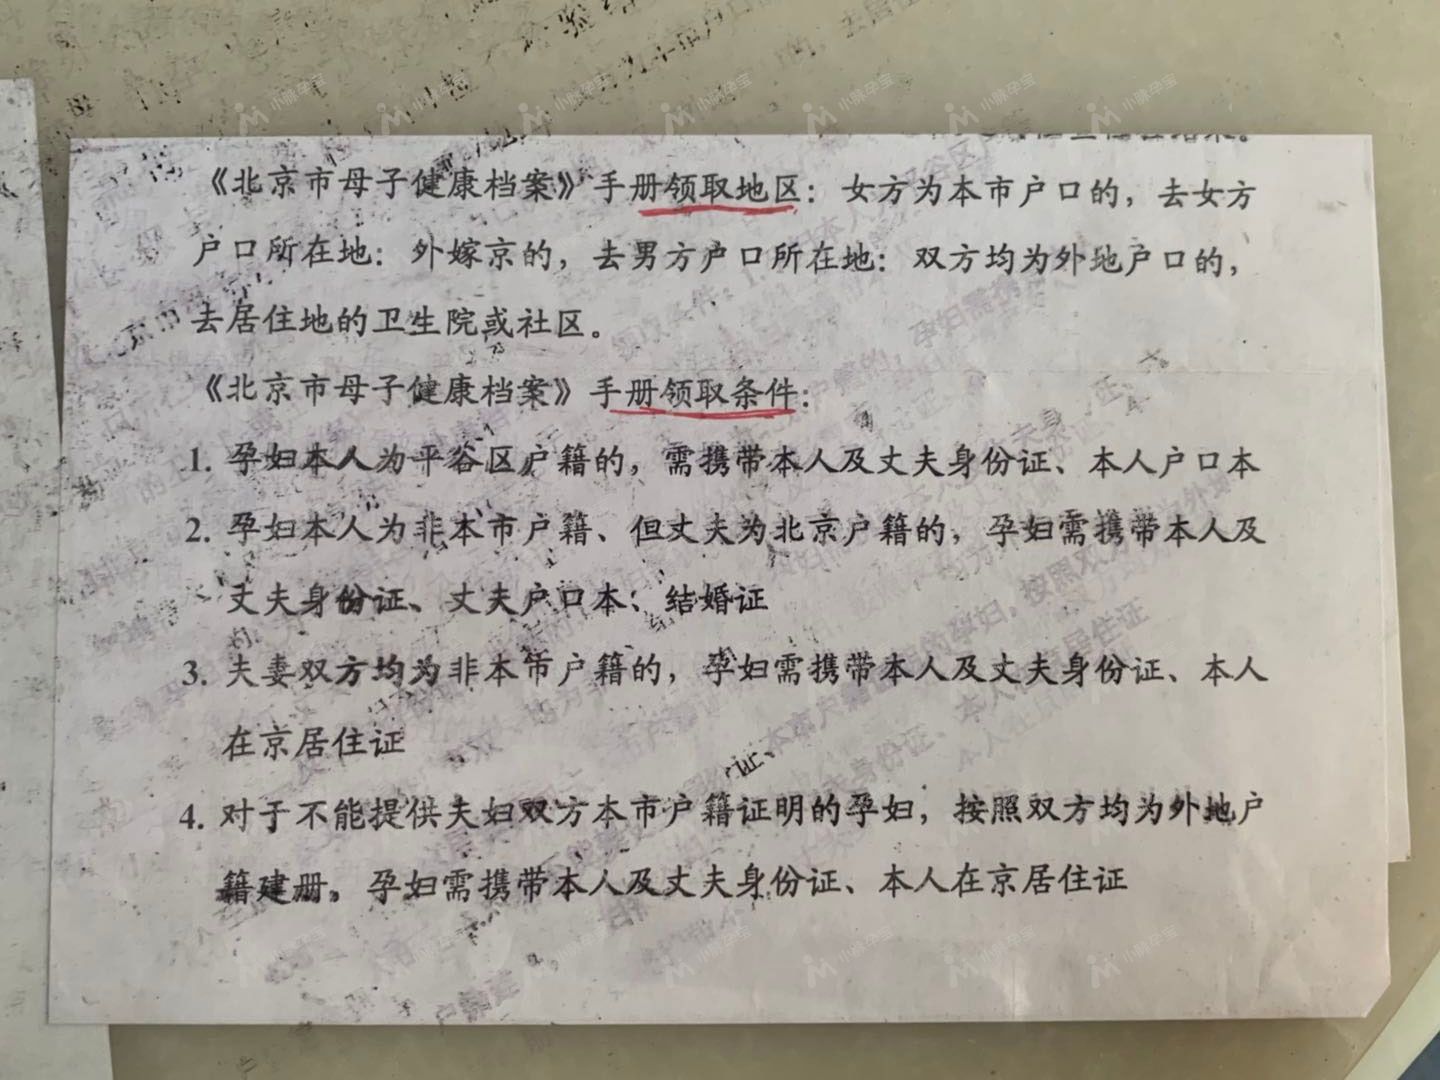 《北京市母子健康档案》手册领取地区：女方为本市户口的，去女方
户口所在地：外嫁京的，去男方户口所在地：双方均为外地户口的，
去居住地的卫生院或社区。
《北京市母子健康档案》手册领取条件：
1. 孕妇本人为平谷区户籍的，需携带本人及丈夫身份证、本人户口本
2. 孕妇本人为非本市户籍、但丈夫为北京户籍的，孕妇需携带本人及
丈夫身份证、丈夫户口本：结婚证
3. 夫妻双方均为非本市户籍的，孕妇需携带本人及丈夫身份证、本人
在京居住证
4. 对于不能提供夫妇双方本市户籍证明的孕妇，按照双方均为外地户
籍建册。孕妇需携带本人及丈夫身份证、本人在京居住证
小脉孕宝